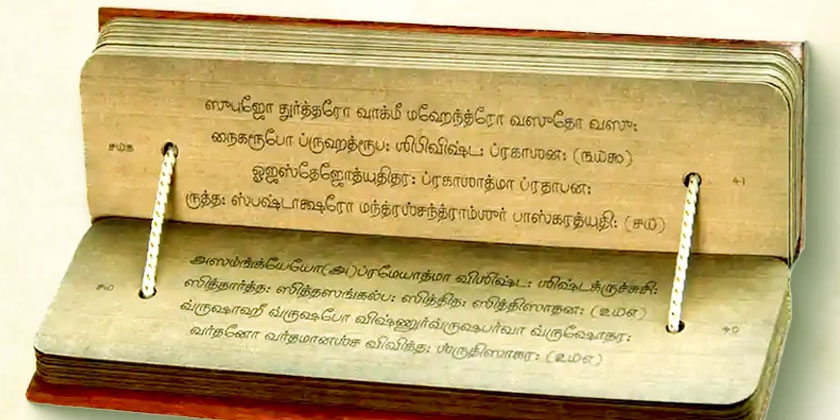 ஸுபுஜோ துர்த்தரோ வாக்மீ மஹேந்த்ரோ வஸுதோ வஸு:
௪௰௧ நைகரூபோ ப்ருஹத்ரூப: ஶிபிவிஷ்ட: ப்ரகாஶன: (௩௰௯)
ஓஜஸ்தேஜோத்யுதிதர: ப்ரகாஶாத்மா ப்ரதாபன: 41
ருத்த: ஸ்பஷ்டாக்ஷரோ மந்த்ரஶ்சந்த்ராம்ஶுர் பாஸ்கரத்யுதி: (௪௰)
அஸங்க்யேயோ(அ)ப்ரமேயாத்மா விஶிஷ்ட: ஶிஷ்டக்ருச்சுசி:
௪௰ ஸித்தார்த்த: ஸித்தஸங்கல்ப: ஸித்தித: ஸித்திஸாதன: (௨௰௭)
வ்ருஷாஹீ வ்ருஷபோ விஷ்ணுர்வ்ருஷபர்வா வ்ருஷோதர: 40
வர்தனோ வர்தமானஶ்ச விவிக்த: ஶ்ருதிஸாகர: (௨௰௭)